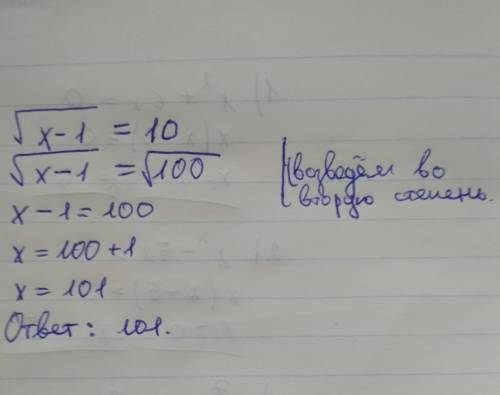 √x-1 = 10
√x-1 = √100
x-1 = 100
x = 100+1
x = 101
Ответ: 101.
возведём во
вторую степень.